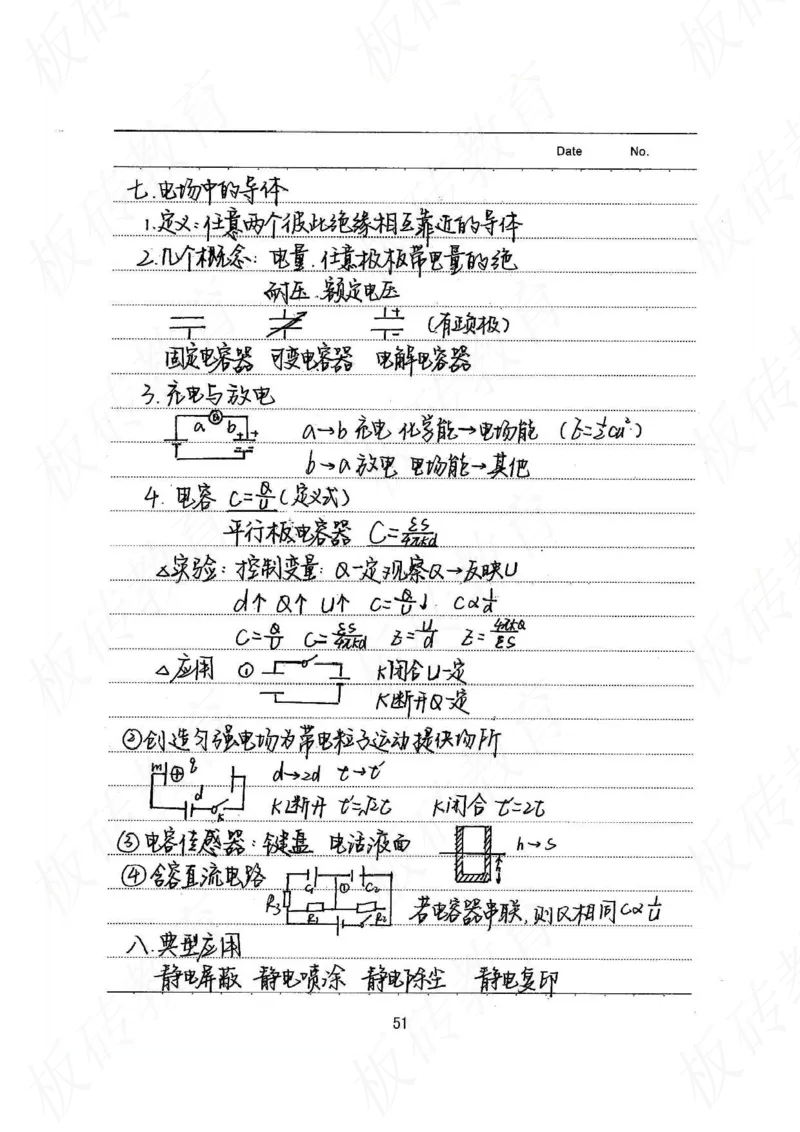 Date No.
七.电场中的导体
1.定义:任意两个彼此绝缘相互靠近的导体
2.几个概念:电量.任意极板带电量的绝
耐压.额定电压
(有正负极)
固定电容器 可变电容器 电解电容器
3.充电与放电
a→b 充电 化学能→电场能 (E=½cu²)
b→a 放电 电场能→其他
4.电容 C=Q/U(定义式)
平行板电容器 C=εS/4πkd
△实验:控制变量:Q一定观察Q→反映U
d↑ Q↑ U↑ C=Q/U↓ C∝1/d
C=Q/U C=εS/4πkd E=U/d E=4πkQ/εS
△应用 ① K闭合U一定
K断开Q一定
②创造匀强电场为带电粒子运动提供场所
m q d K d→2d t→t'
K断开 t'=√2t K闭合 t'=2t
③电容传感器:键盘 电话液面 h→S
④含容直流电路 C₁ ① C₂
R₃ R₁ R₂ 若电容器串联,则Q相同C∝1/U
八.典型应用
静电屏蔽 静电喷涂 静电除尘 静电复印
51
板砖教育